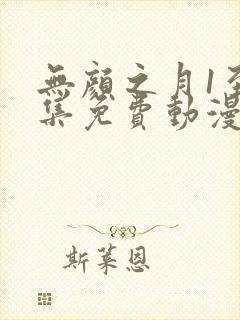 無顏之月1至
集免費動漫
斯萊恩